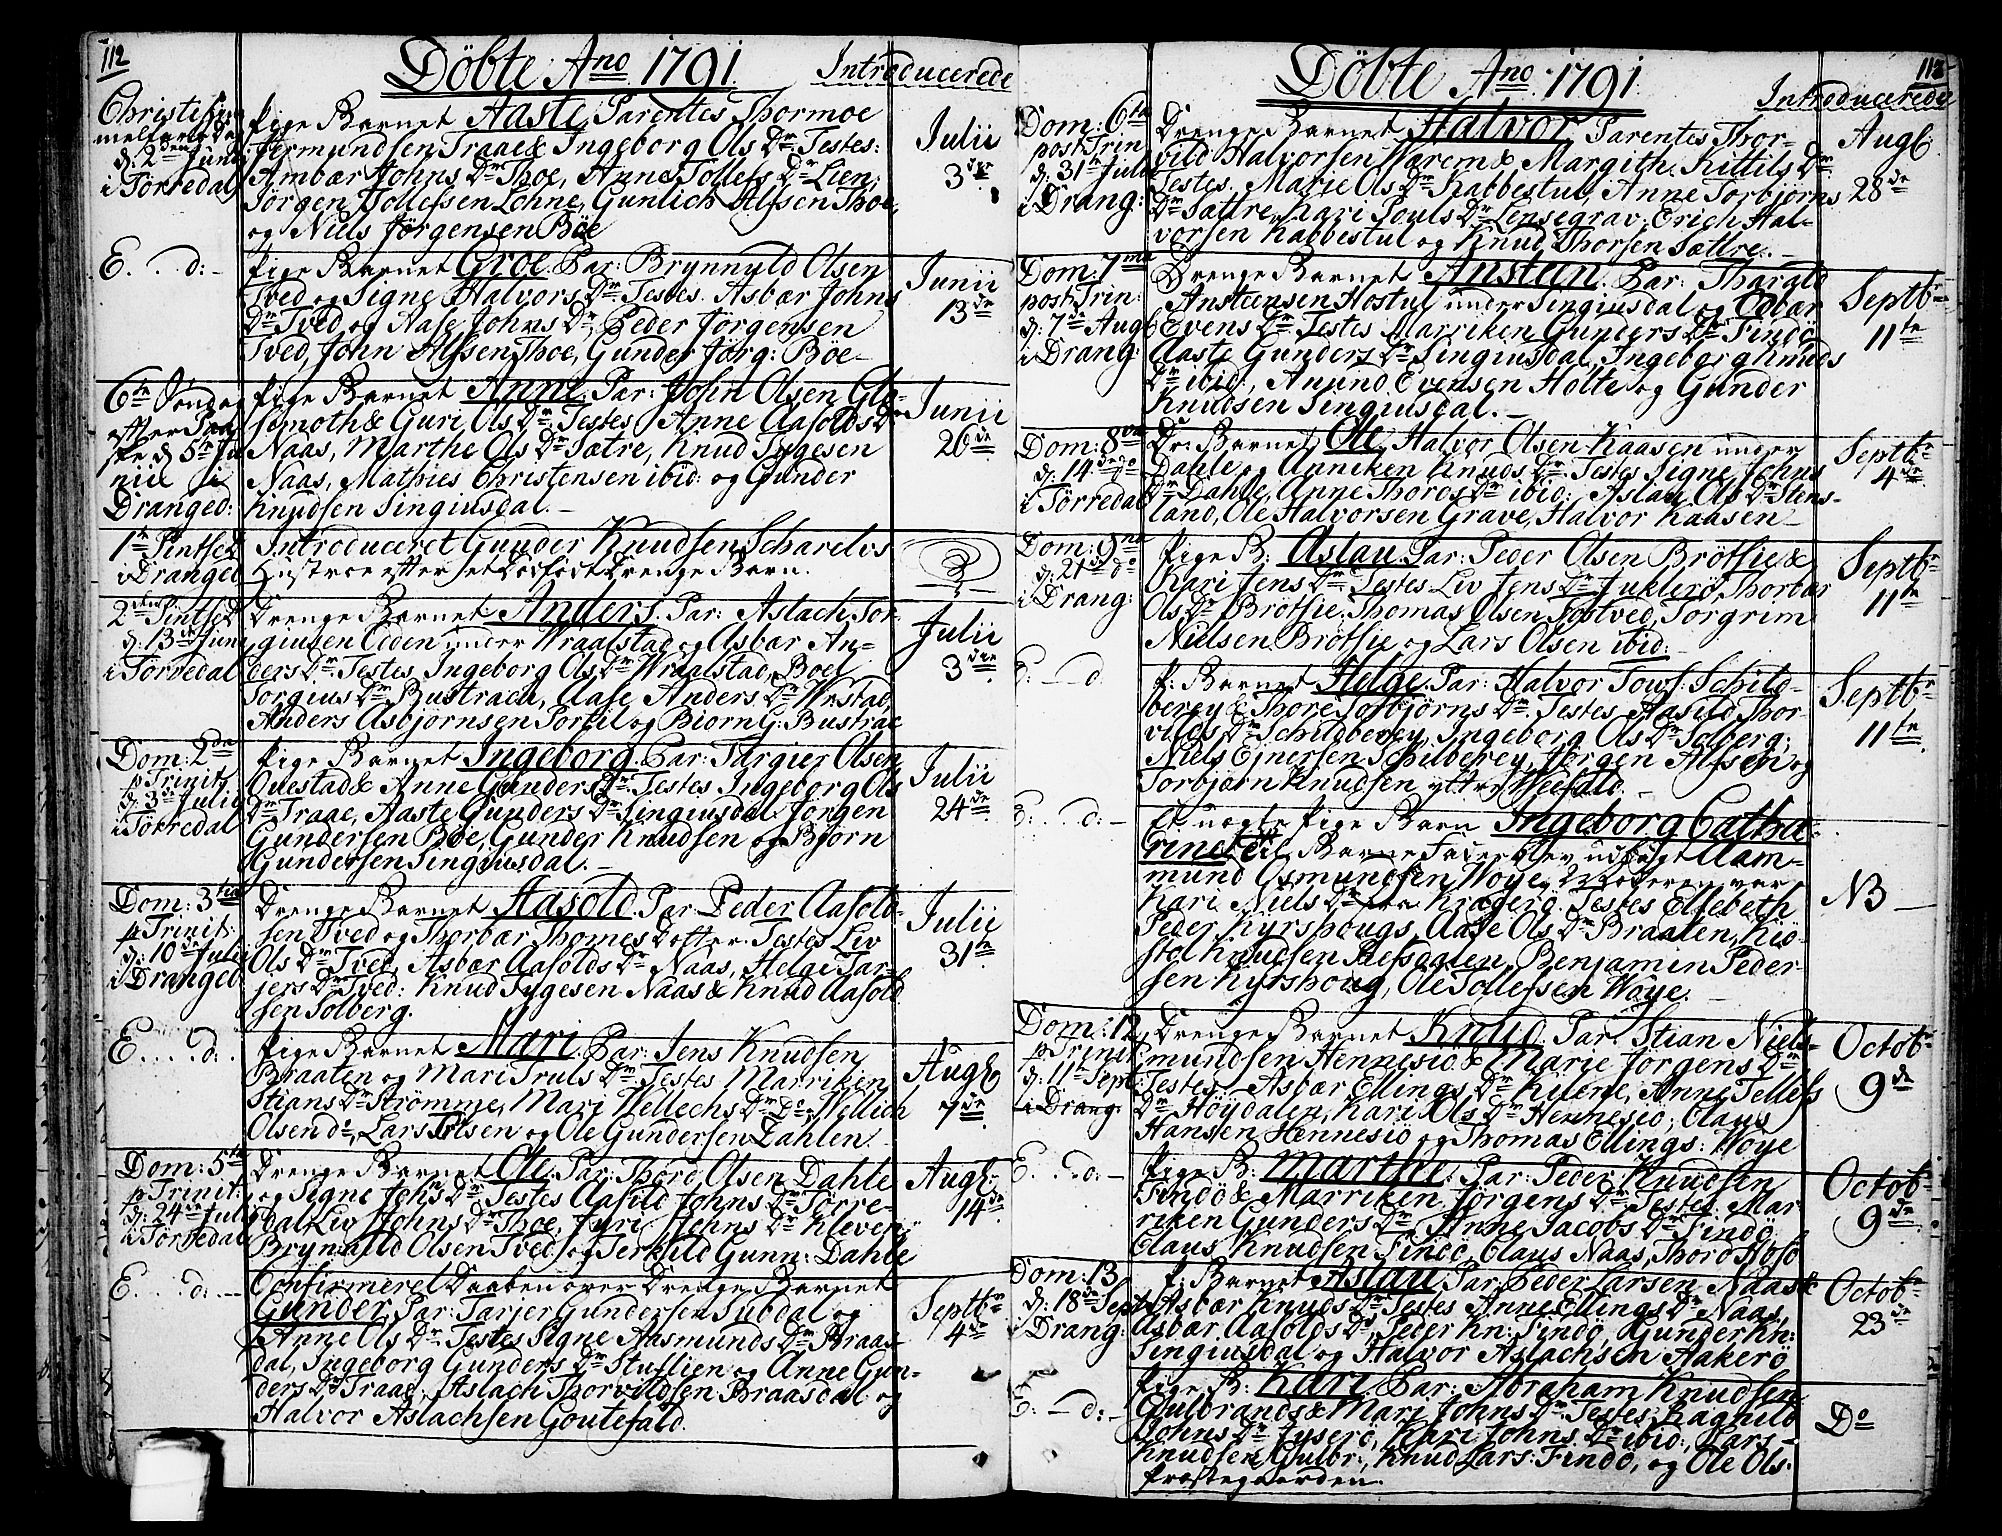 112
Döbte Ano 1791.
Introducerede
Christi Him-
melfarts Dag
d: 2den Junii
i Törredal
Pige Barnet Aaste, Parentes Thormoe
Jermundsen Traae & Ingeborg Ols Dr Testes:
Ambær Johns Dr Thoe, Anne Tollefs Dr Lien,
Jörgen Tollefsen Lohne, Gunlich Alfsen Thoe,
og Niels Jörgensen Böe
Julii
3de
E. . . d: -
Pige Barnet Groe. Par: Brynnuld Olsen
Tved og Signe Halvors Dr Testes. Asbær Johns
Dr Tved og Aase Johns Dr, Peder Jörgensen
Tved, John Alfsen Thoe, Gunder Jörg: Böe-
Junii
13de
6te Söndag
efter Paa-
ske d 5te Ju
nii i
Dranged:
Pige Barnet Anne. Par: John Olsen
& Guri Ols Dr Testes Anne Aasolds Dr
Naas, Marthe Ols Dr Sætre, Knud Tygesen
Naas, Mathies Christensen ibid: og Gunder
Knudsen Singiusdal. -
Junii
26de
1te Pintsed
i Dranged
Introduceret Gunder Knudsen
Hustroe efter et Dödföd Drenge Barn.
2den Pintsed
d. 13de Junii
i Törredal
Drenge Barnet Anders. Par: Aslach Tor-
giusen Edden under Wraalstad og Asbær An-
ders Dr Testes Ingeborg Ols Dr Wraalstad, Boel
Torgius Dr Bustrach, Aase Anders Dr Wrstad,
Anders Asbjörnsen og Biörn G: Bustrac
Julii
3die
Dom: 2da
p Trinit:
d. 3de Julii
i Törredal
Pige Barnet Ingeborg. Par: Targier Olsen
Ouestad & Anne Gunders Dr Testes Ingeborg Ols
Dr Traae, Aaste Gunders Dr Singiusdal. Jörgen
Gundersen Böe, Gunder Knudsen og Björn
Gundersen Singiusdal. -
Julii
24de
Dom: 3tia
p Trinit:
d: 10de Julii
i Dranged
Drenge Barnet Aasold. Par Peder Aasold-
sen Tved og Thorbær Thomes Dotter. Testes Liv
Ols Dr Tved, Asbær Aasolds Dr Naas, Helge Tar-
jers Dr Tved: Knud Tygesen Naas & Knud Aasold
sen Solberg.
Julii
31te
E. . . d: .
Pige Barnet Mari. Par: Jens Knudsen
Braaten og Mari Truls Dr Testes Marriken
Stians Dr Strömme, Mari Wellechs Dr Do Wellich
Olsen do, Lars Olsen og Ole Gundersen Dahlen
Augl
7de
Dom: 5ta
p Trinit:
d: 24de Julii
i Törredal
Drenge Barnet Ole. Par: Thord Olsen Dahle
og Signe Johs Dr Testes Aasild Johns Dr Törre-
dal Liv Johns Dr Thoe, Jyri Johns Dr Kleven,
Brynnild Olsen Tved og Terkild Gunn: Dahle
Augl
14de
E. . . d: -
Confirmeret Daaben over Drenge Barnet
Gunder, Par: Tarjer Gundersen Subdal og
Anne Ols Dr Testes Signe Aasmunds Dr Braas-
dal, Ingeborg Gunders Dr Stuflien og Anne Gun-
ders Dr Traae, Aslach Thorvildsen Braasdal og
Halvor Aslachsen Goutefald.
Septbr
4de
Döbte Ano 1791
113
Introducerede
Dom: 6ta
post Trin
d. 31te Julii
i Drang:
Drenge Barnet Halvor Parentes Thor-
vild Halvorsen Wærem & Margith Kittils Dr
Testes. Marie Ols Dr Kabbestul, Anne Torbjörns
Dr Sættre, Kari Pouls Dr Lensegrav; Erich Hal-
vorsen Kabbestul og Knud Thorsen Sættre. -
Augl
28de
Dom: 7ma
post Trin:
d: 7de Augl
i Drang:
Drenge Barnet Ansteen. Par: Tharald
Ansteensen Hostul under Singiusdal og Edbær
Evens Dr Testes Marriken Gunders Dr Findö
Aaste Gunders Dr Singiusdal, Ingeborg Knuds
Dr ibid:, Anund Evensen Holte og Gunder
Knudsen Singiusdal. -
Septbr
11te
Dom: 8va
d: 14de do
i Törredal
Dr: Barnet Ole, Halvor Olsen Kaasen under
Dahle og Anniken Knuds Dr Testes Signe Johns
Dr Dahle, Anne Thords Dr ibid: Aslau Ols Dr Stens-
land, Ole Halvorsen Grave, Halvor Kaasen -
Septbr
4de
Dom: 9na
d: 21de do
i Drang:
Pige B: Aslau. Par: Peder Olsen Brötsie &
Kari Jens Dr Testes Liv Jens Dr Juklerö, Thorbær
Ols Dr Brötsie. Thomas Olsen Tostved, Torgrim
Nielsen Brötsie og Lars Olsen ibid: -
Septbr
11te
E: - d:
P: Barnet Helge. Par: Halvor Towf: Schild-
berey & Thore Torbjörns Dr Testes Aasild Thor-
vilds Dr Schildberey, Ingeborg Ols Dr Solberg;
Niels Ejnersen Schilberey, Jörgen Alfsen og
Torbjörn Knudsen yttre Weefald. -
Septbr
11te
E: . . d: -
Et uægte Pige Barn Ingeborg Catha-
rine, til Barne Fader blev udlagt Aam-
mund Osmundsen Woje, Moderen var
Kari Niels Dr fra Kragerö. Testes Ellebeth
Peder Kyrshougs, Aase Ols Dr Braaten, Kiö-
stol Knudsen Refsdalen, Benjamin Peder-
sen Kyrshoug, Ole Tollefsen Woje. -
NB -
Dom: 12
p Trinit:
d: 11te Sept:
i Drang:
Drenge Barnet Knud. Par. Stian Niels-
mundsen Hennesiö & Marie Jörgens Dr
Testes Asbær Ellings Dr Kilene, Anne Tellefs
Dr Höydalen, Kari Ols Dr Hennesiö; Claus
Hansen Hennesiö og Thomas Ellings: Woje
Octobr
9de
E. . . d: -
Pige B: Marthe. Par: Peder Knudsen
Findö & Marriken Jörgens Dr Testes Mar
riken Gunders Dr, Anne Jacobs Dr Findö
Claus Knudsen Findö, Claus Naas, Thord
Octobr
9de
Dom: 13
d: 18de Sept
i Drang:
P: Barnet Aslau Par: Peder Larsen Naas &
Asbær Knuds Dr Testes Anne Ellings Dr Naas,
Asbær Aasolds Dr, Peder Kn: Findö, Gunder Kn:
Singiusdal og Halvor Aslachsen Aakerö
Octobr
23de
E: - d: -
Pige B: Kari. Par: Abraham Knudsen
Gulbrands & Mari Johns Dr Testes Ragnild
Johns Dr Jyserö, Kari Johns Dr ibid:, Lars
Knudsen Gulbr:, Knud Lars: Findö, og Ole Ols:
Præstegaarden.
Do